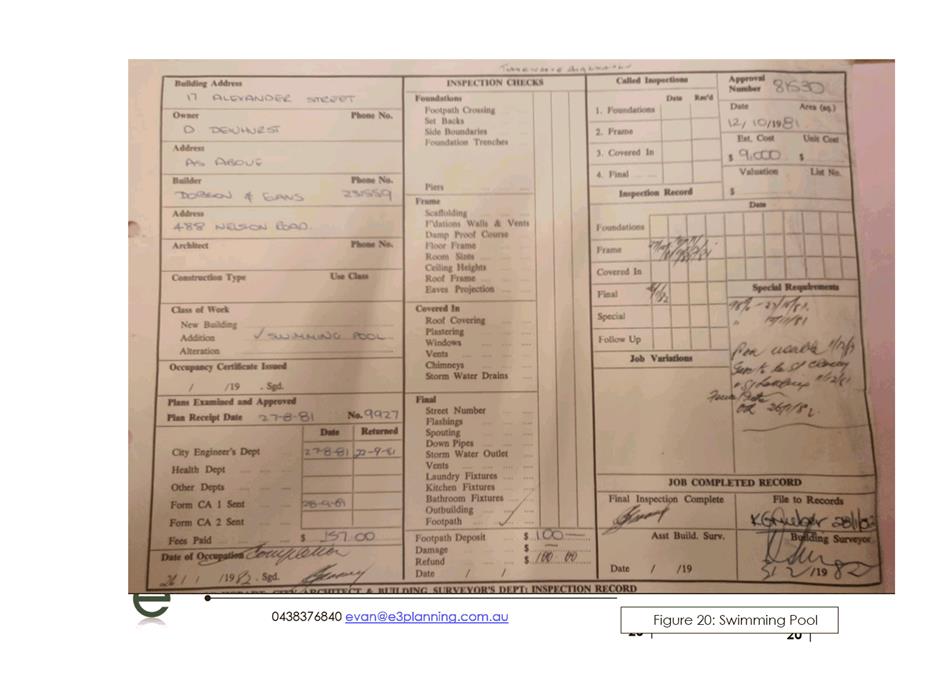 Building Address
17 ALEXANDER STREET
Owner Phone No.
D DEWHURST
Address
AS ABOVE
Builder Phone No.
DOBSON & EVANS 231559
Address
488 NELSON ROAD.
Architect Phone No.
Construction Type Use Class
Class of Work
New Building
Addition ✓ SWIMMING POOL
Alteration
Occupancy Certificate Issued
/ /19 . Sgd.
Plans Examined and Approved
Plan Receipt Date 27-8-81 No. 9927
Date Returned
City Engineer's Dept 27-8-81 22-9-81
Health Dept
Other Depts
Form CA 1 Sent 28-9-81
Form CA 2 Sent
Fees Paid $ 157.00
Date of Occupation Completion
26/1/1982. Sgd.
INSPECTION CHECKS
Foundations
Footpath Crossing
Set Backs
Side Boundaries
Foundation Trenches
Piers
Frame
Scaffolding
F'dations Walls & Vents
Damp Proof Course
Floor Frame
Room Sizes
Ceiling Heights
Roof Frame
Eaves Projection
Covered In
Roof Covering
Plastering
Windows
Vents
Chimneys
Storm Water Drains
Final
Street Number
Flashings
Spouting
Down Pipes
Storm Water Outlet
Vents
Laundry Fixtures
Kitchen Fixtures
Bathroom Fixtures
Outbuilding
Footpath ✓
Footpath Deposit $ 100 —
Damage $ —
Refund $ 100.00
Date / /
Called Inspections
Date Rec'd
1. Foundations
2. Frame
3. Covered In
4. Final
Approval Number 81530
Date Area (sq.)
12/10/1981
Est. Cost Unit Cost
$ 9,000 $
Valuation List No.
$
Inspection Record
Date
Foundations
Frame
Covered In
Final
Special
Follow Up
Special Requirements
Job Variations
JOB COMPLETED RECORD
Final Inspection Complete
File to Records
28/1/82
Asst Build. Surv.
Building Surveyor
Date / /19
5/2/1982
HOBART CITY ARCHITECT & BUILDING SURVEYOR'S DEPT: INSPECTION RECORD
e
0438376840 evan@e3planning.com.au
Figure 20: Swimming Pool
20